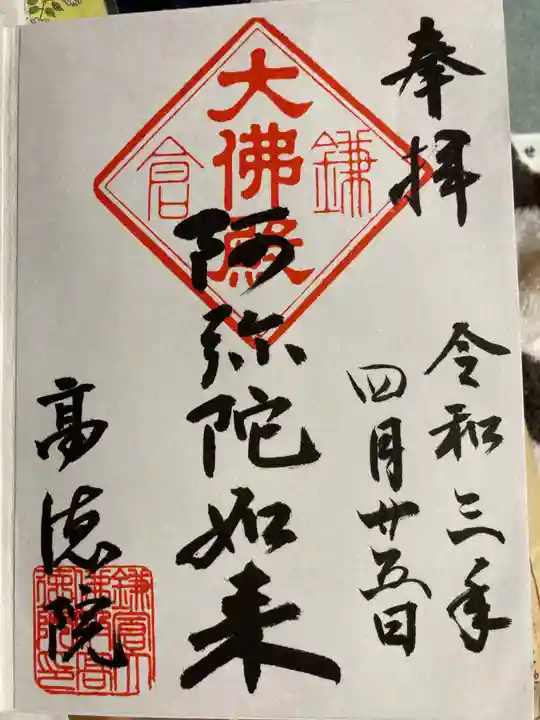 奉拝
令和三年
四月廿五日
鎌倉
大佛殿
阿弥陀如来
高徳院